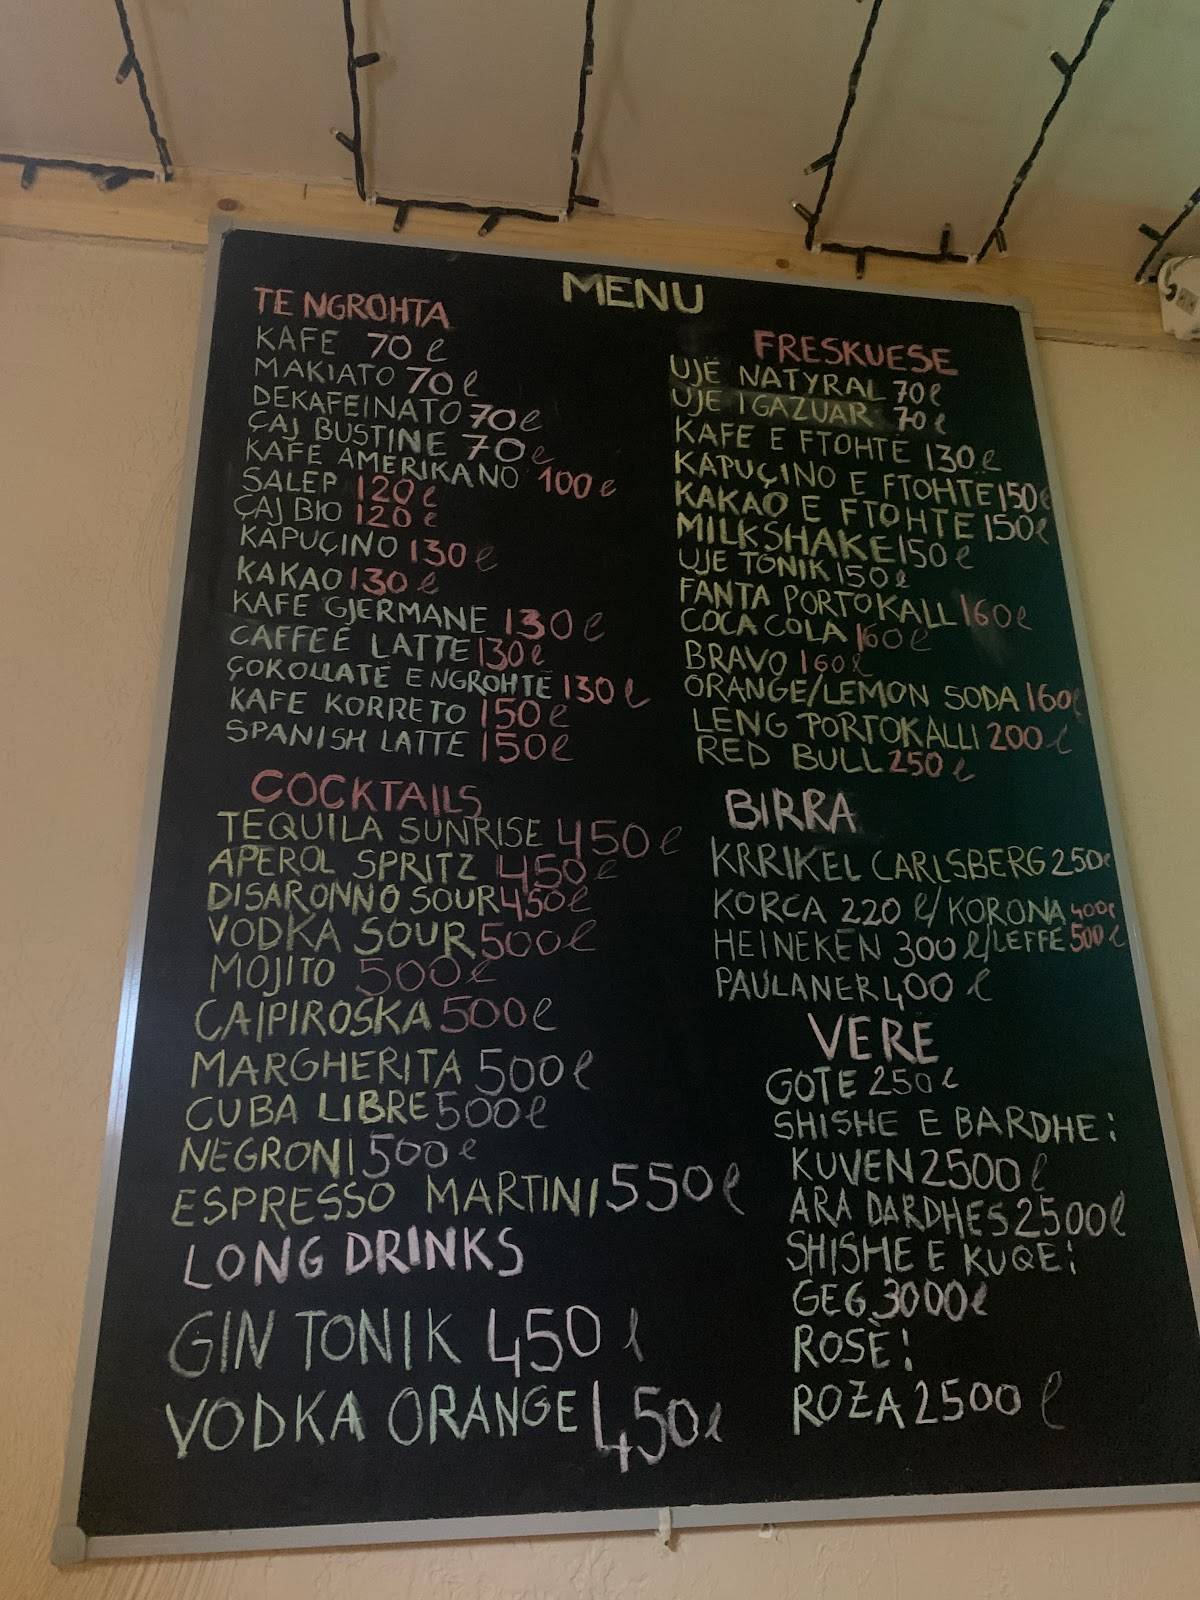 MENU
TE NGROHTA
KAFE 70 l
MAKIATO 70 l
DEKAFEINATO 70 l
ÇAJ BUSTINE 70 l
KAFE AMERIKANO 100 l
SALEP 120 l
ÇAJ BIO 120 l
KAPUÇINO 130 l
KAKAO 130 l
KAFE GJERMANE 130 l
CAFFEE LATTE 130 l
ÇOKOLLATË E NGROHTË 130 l
KAFE KORRETO 150 l
SPANISH LATTE 150 l
COCKTAILS
TEQUILA SUNRISE 450 l
APEROL SPRITZ 450 l
DISARONNO SOUR 450 l
VODKA SOUR 500 l
MOJITO 500 l
CAIPIROSKA 500 l
MARGHERITA 500 l
CUBA LIBRE 500 l
NEGRONI 500 l
ESPRESSO MARTINI 550 l
LONG DRINKS
GIN TONIK 450 l
VODKA ORANGE 450 l
FRESKUESE
UJË NATYRAL 70 l
UJE I GAZUAR 70 l
KAFE E FTOHTË 130 l
KAPUÇINO E FTOHTË 150 l
KAKAO E FTOHTË 150 l
MILKSHAKE 150 l
UJE TONIK 150 l
FANTA PORTOKALL 160 l
COCA COLA 160 l
BRAVO 160 l
ORANGE/LEMON SODA 160 l
LENG PORTOKALLI 200 l
RED BULL 250 l
BIRRA
KRRIKEL CARLSBERG 250 l
KORCA 220 l/KORONA 400 l
HEINEKEN 300 l/LEFFE 500 l
PAULANER 400 l
VERE
GOTE 250 l
SHISHE E BARDHE:
KUVEN 2500 l
ARA DARDHES 2500 l
SHISHE E KUQE:
GEG 3000 l
ROSÈ:
ROZA 2500 l